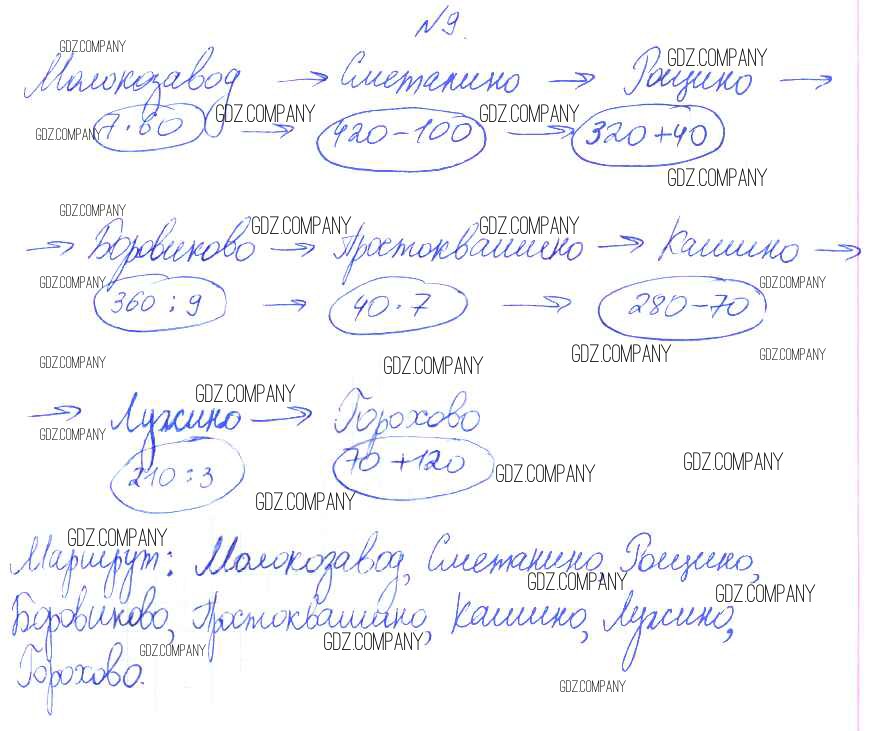 №9.
GDZ.COMPANY
GDZ.COMPANY
Молокозавод → Сметанино → Рощино →
GDZ.COMPANY GDZ.COMPANY
GDZ.COMPANY
7·60 → 420-100 → 320+40
GDZ.COMPANY
GDZ.COMPANY
GDZ.COMPANY GDZ.COMPANY
→ Боровиково → Простоквашино → Кашино →
GDZ.COMPANY GDZ.COMPANY
360:9 → 40·7 → 280-70
GDZ.COMPANY GDZ.COMPANY GDZ.COMPANY GDZ.COMPANY
GDZ.COMPANY
→ Лужино → Горохово
GDZ.COMPANY
210:3 70+120
GDZ.COMPANY GDZ.COMPANY
GDZ.COMPANY
GDZ.COMPANY
Маршрут: Молокозавод, Сметанино, Рощино,
GDZ.COMPANY GDZ.COMPANY
Боровиково, Простоквашино, Кашино, Лужино,
GDZ.COMPANY GDZ.COMPANY
Горохово.
GDZ.COMPANY